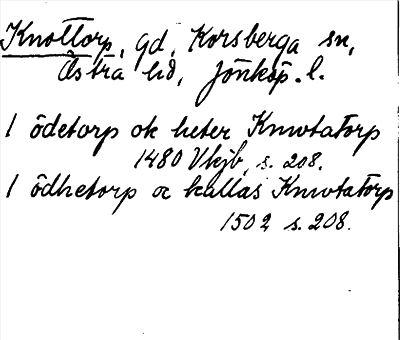 Knottorp, gd, Korsberga sn,
Östra hd, Jönköp. l.
1 ödetorp ok heter Knwtatorp
1480 Vhjb, s. 208.
1 ödhetorp oc kallas Knwtatorp
1502 s. 208.